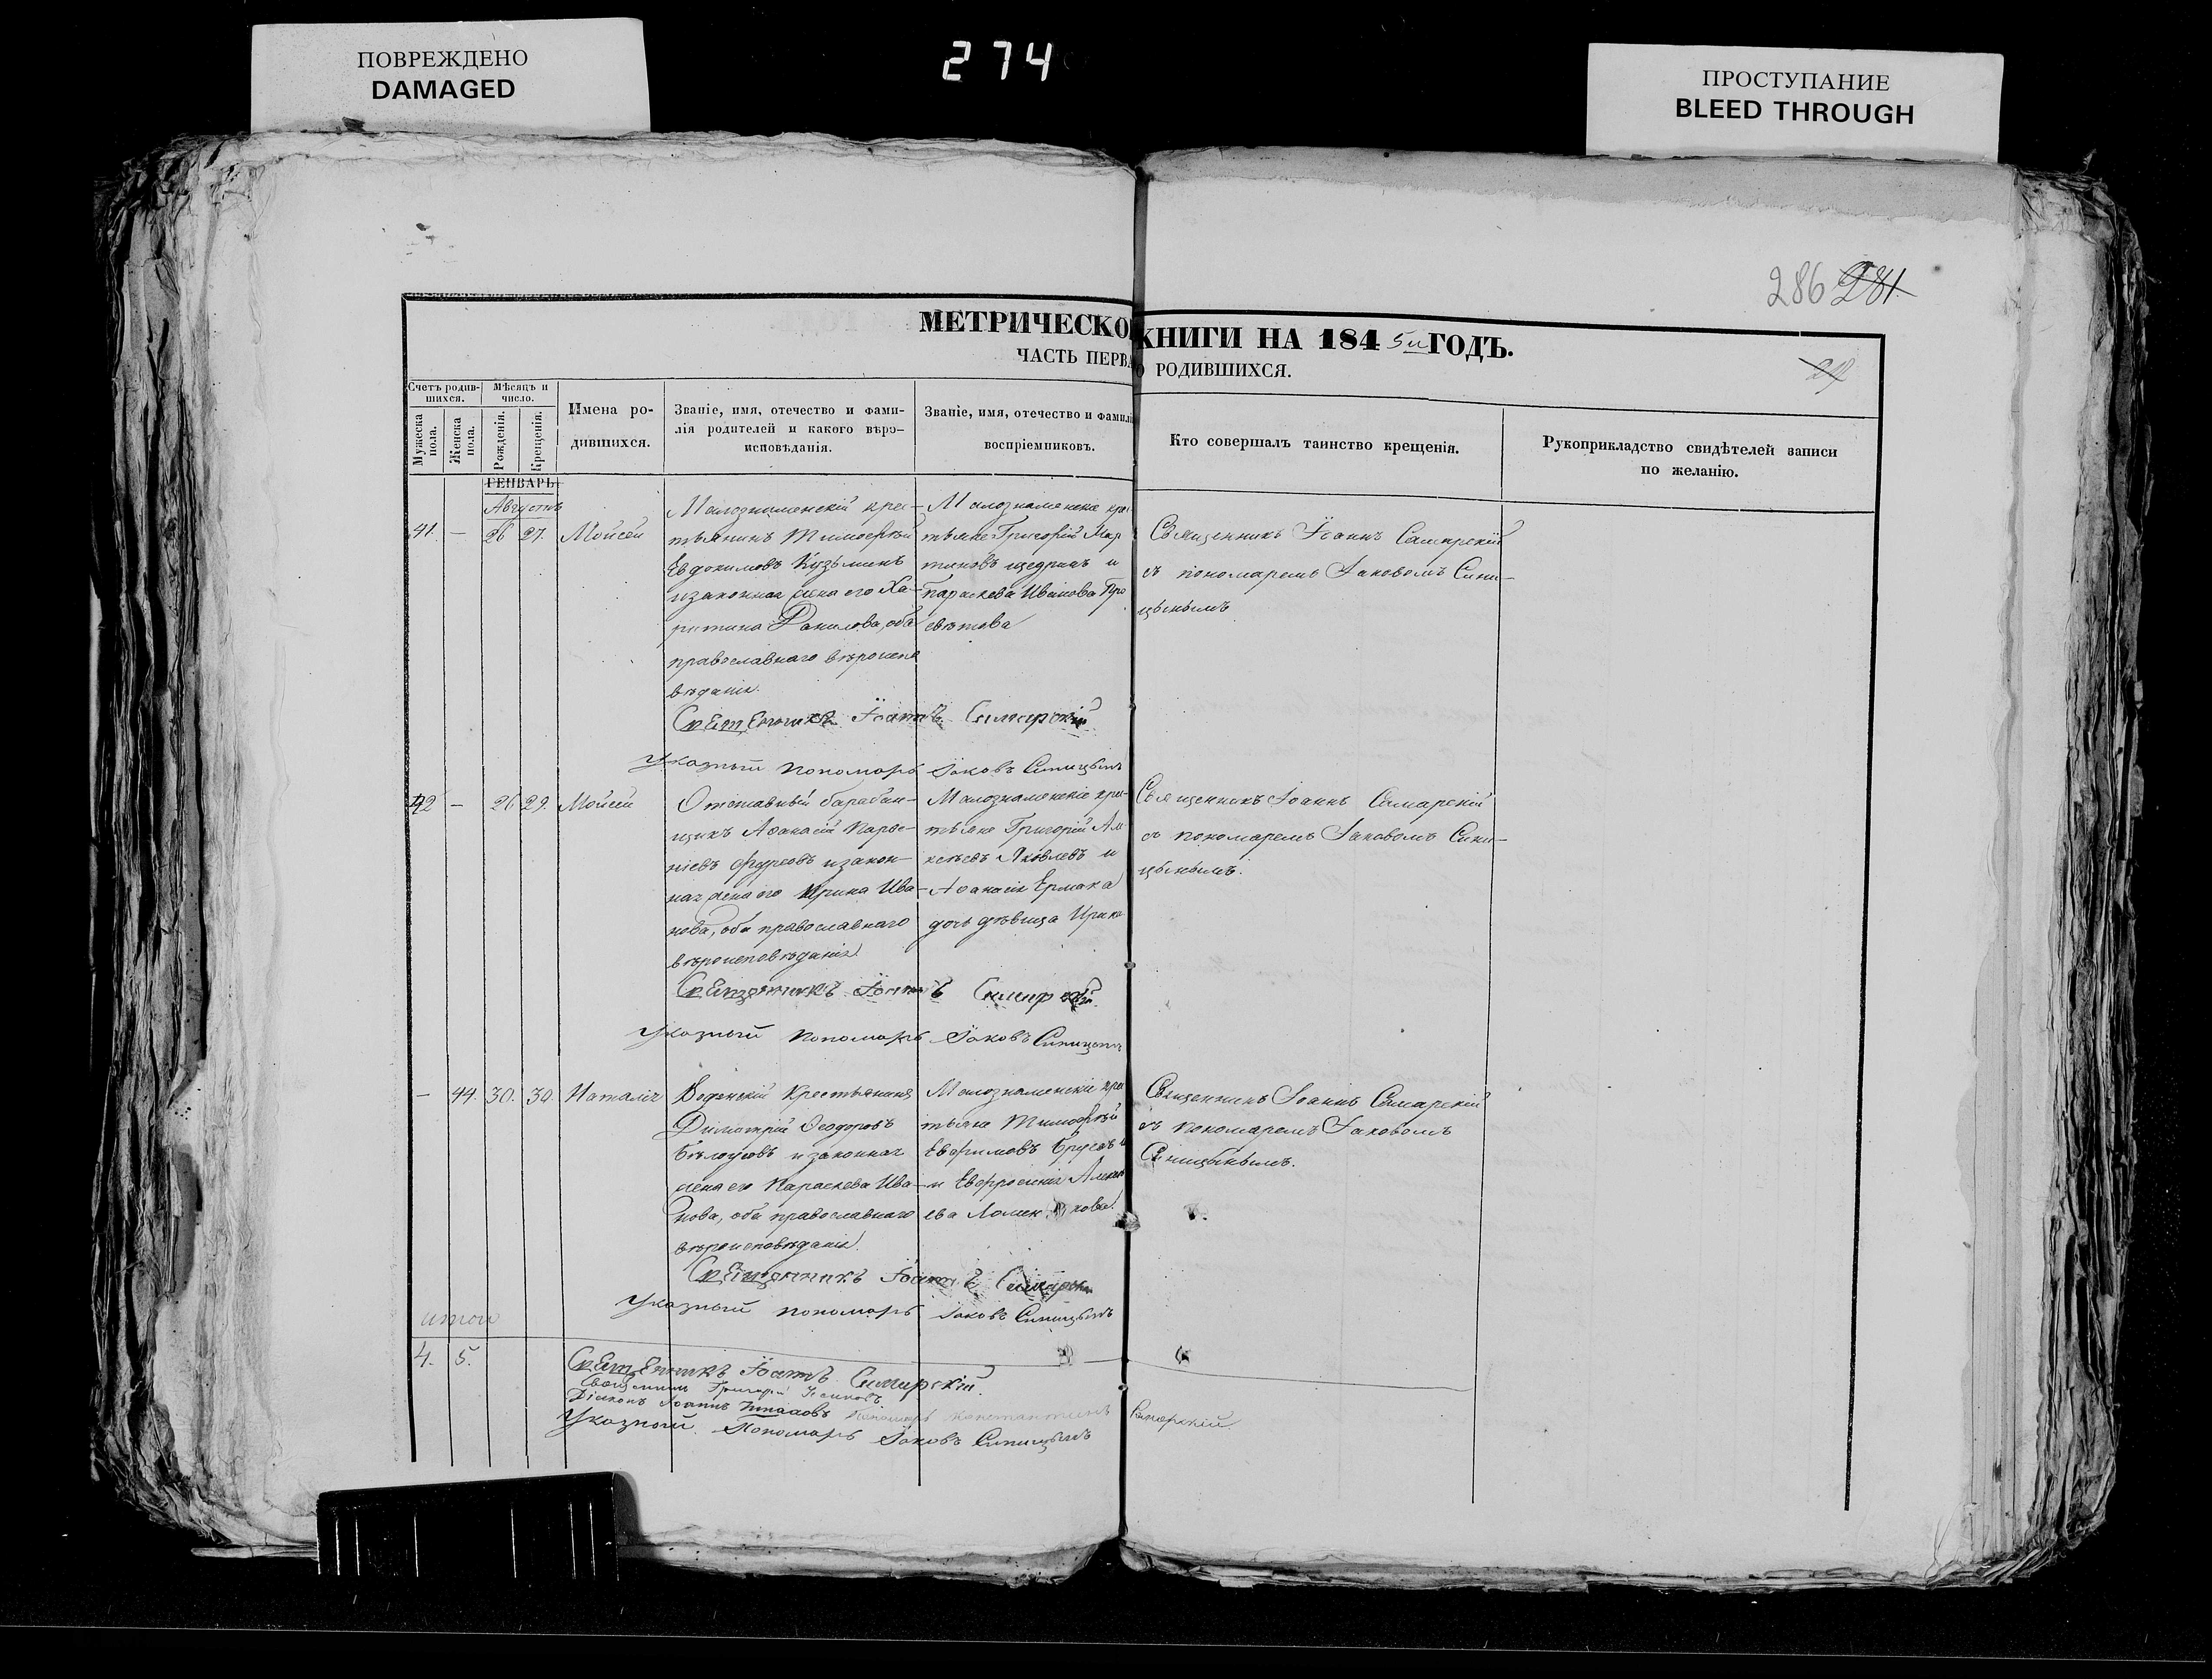 ПОВРЕЖДЕНО
DAMAGED
274
ПРОСТУПАНИЕ
BLEED THROUGH
286 281.
МЕТРИЧЕСКО КНИГИ НА 1845й ГОДЪ.
ЧАСТЬ ПЕРВА О РОДИВШИХСЯ.
Счетъ родив-
шихся.
Мужеска пола.
Женска пола.
Мѣсяцъ и
число.
Рожденія.
Крещенія.
Имена ро-
дившихся.
Званіе, имя, отечество и фами-
лія родителей и какого вѣро-
исповѣданія.
Званіе, имя, отечество и фамилі
воспріемниковъ.
Кто совершалъ таинство крещенія.
Рукоприкладство свидѣтелей записи
по желанію.
ГЕНВАРЬ
Августъ
41. — 26 27. Мойсей
Малознаменскій крес-
тьянинъ Тимофѣй
Евдокимовъ Кузьминъ
и законная жена его Ха-
ритина Данилова, оба
православнаго вѣроиспо
вѣданія.
Малознаменскіе крес
тьяне Григорій Мар
тиновъ и
Параскева Иванова
Священникъ Іоаннъ Самарскій
съ пономаремъ Іаковомъ Сини-
цынымъ
Священникъ Іоаннъ Самарскій
Указный пономарь Іаковъ Синицынъ
42 — 26 29. Мойсей
Отставный барабан-
щикъ Афанасій
и закон-
ная жена его Ирина Ива-
нова, оба православнаго
вѣроисповѣданія
Малознаменскіе крес-
тьяне Григорій Але
ксѣевъ Яковлевъ и
Афанасія Ермака
дочь дѣвица Ирина
Священникъ Іоаннъ Самарскій
съ пономаремъ Іаковомъ Сини-
цынымъ.
Священникъ Іоаннъ Самарскій
Указный пономарь Іаковъ Синицынъ
— 44. 30. 30. Наталія
Крестьянинъ
Димитрій Феодоровъ
Бѣлоусовъ и законная
жена его Параскева Ива-
нова, оба православнаго
вѣроисповѣданія.
Малознаменскіе крес
тьяне Тимофѣй
Евфимовъ
и Евфросинія Алексѣ
ева
Священникъ Іоаннъ Самарскій
съ пономаремъ Іаковомъ
Синицынымъ.
Священникъ Іоаннъ Самарскій
Указный пономарь Іаковъ Синицынъ
итог
4. 5.
Священникъ Іоаннъ Самарскій.
Священникъ Григорій
Діаконъ Іоаннъ
Пономарь Константинъ
Указный Пономарь Іаковъ Синицынъ